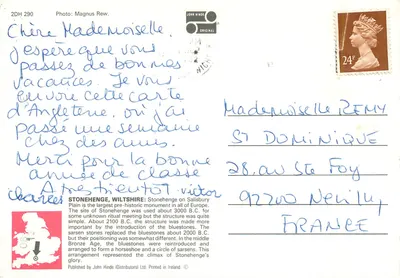 2DH 290
Photo: Magnus Rew.
JOHN HINDE
ORIGINAL
24P
Chère Mademoiselle,
j'espère que vous
passez de bonnes
vacances. Je vous
envoie cette carte
d'Angleterre, où j'ai
passé une semaine
chez des amis.
Merci pour la bonne
année de classe
A très bientôt victor
charles
Mademoiselle REMY
ST DOMINIQUE
28, av Ste Foy
92200 Neuilly
FRANCE
STONEHENGE, WILTSHIRE: Stonehenge on Salisbury
Plain is the largest pre-historic monument in all of Europe.
The site of Stonehenge was used about 3000 B.C. for
some unknown ritual meeting but the structure was quite
simple. About 2100 B.C. the structure was made more
important by the introduction of the bluestones. The
sarsen stones replaced the bluestones about 2000 B.C.
but their positioning was somewhat different. In the middle
Bronze Age, the bluestones were reintroduced and
arranged to form a horseshoe and a circle of sarsens. This
arrangement represented the climax of Stonehenge's
glory.
Published by John Hinde (Distributors) Ltd. Printed in Ireland.